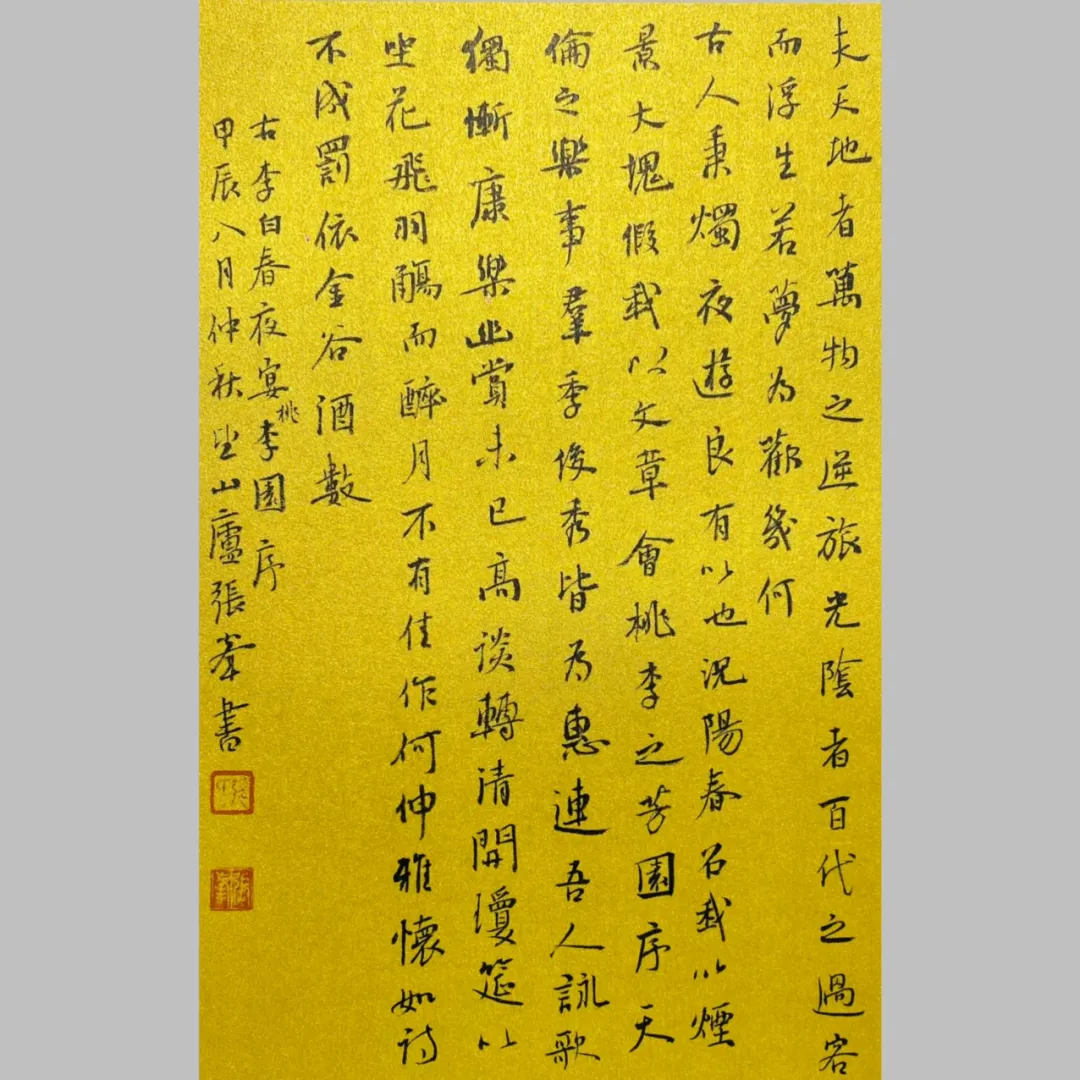 夫天地者萬物之逆旅光陰者百代之過客
而浮生若夢為歡幾何
古人秉燭夜遊良有以也況陽春召我以煙
景大塊假我以文章會桃李之芳園序天
倫之樂事羣季俊秀皆為惠連吾人詠歌
獨慚康樂幽賞未已高談轉清開瓊筵以
坐花飛羽觴而醉月不有佳作何伸雅懷如詩
不成罰依金谷酒數
右李白春夜宴桃李園序
甲辰八月仲秋坐山廬張峯書